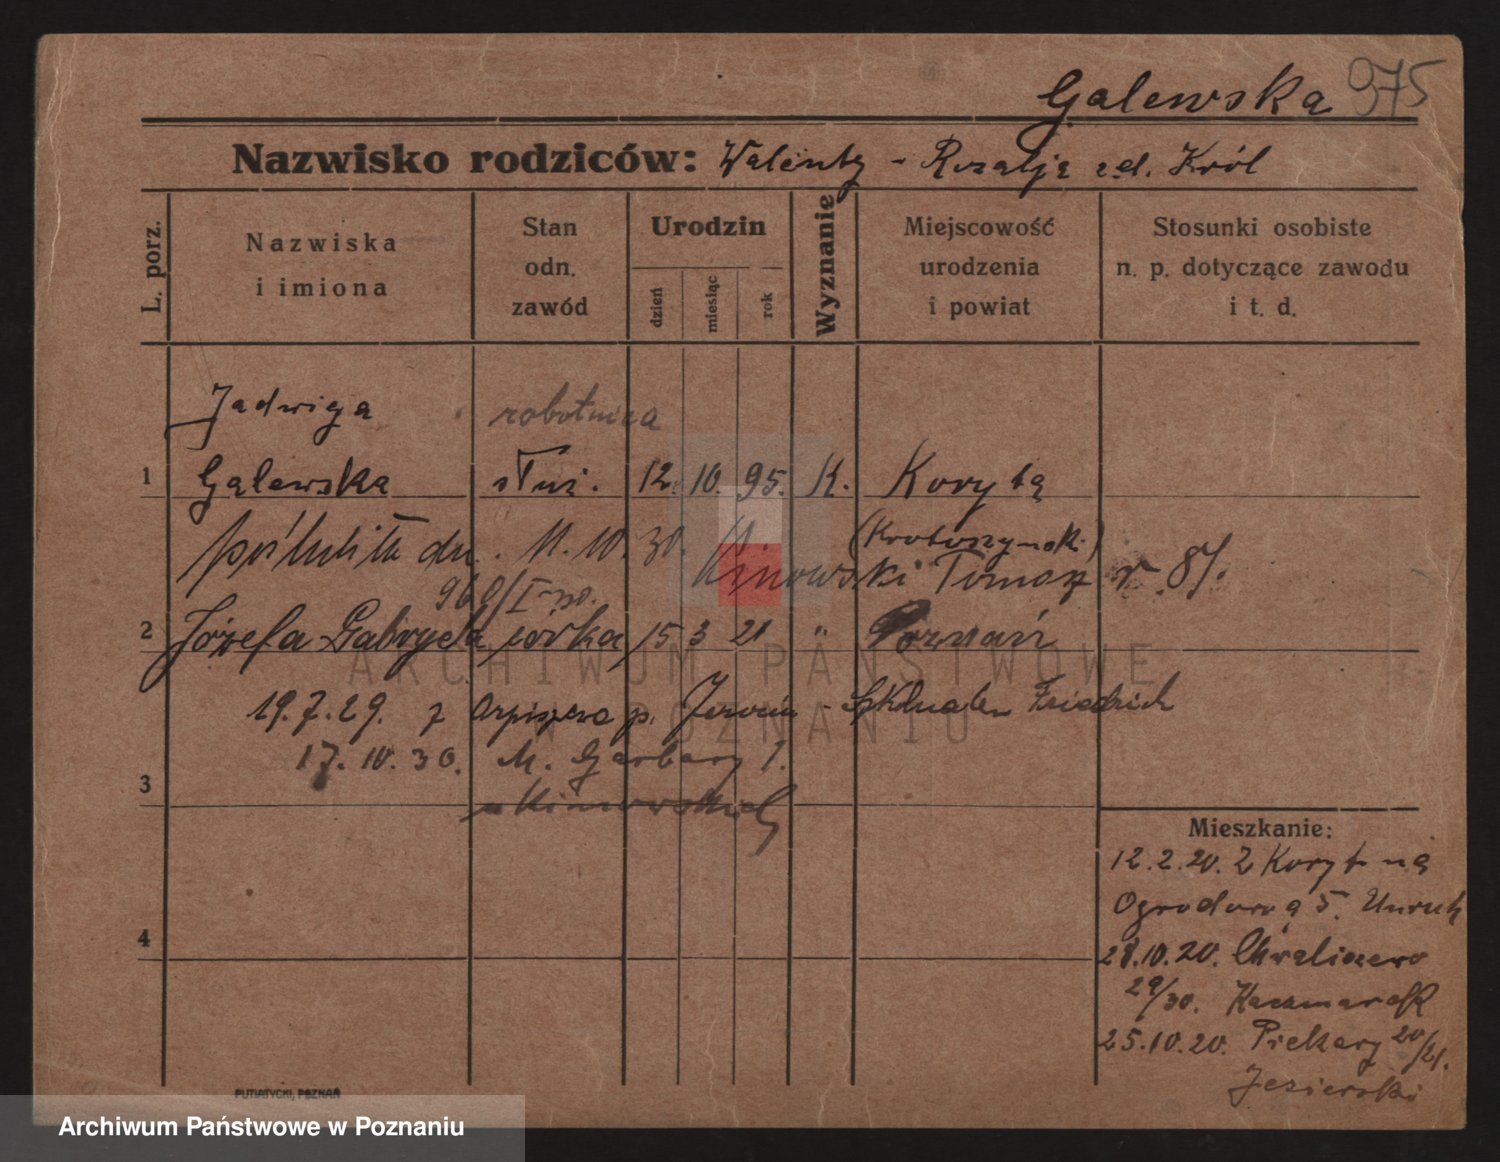 Galewska 975
Nazwisko rodziców: Walenty - Rozalja z d. Król
L. porz.
Nazwiska
i imiona
Stan
odn.
zawód
Urodzin
dzień
miesiąc
rok
Wyznanie
Miejscowość
urodzenia
i powiat
Stosunki osobiste
n. p. dotyczące zawodu
i t. d.
Jadwiga robotnica
1 Galewska służ. 12. 10. 95. K. Koryta
poślubiła dn. 11. 10. 30. (Krotoszyński)
Tomasz r. 87.
960/I
2 Józefa Gabryela córka 15 3 21 " Poznań
ARCHIWUM PAŃSTWOWE
19.7.29. z p. Friedrich
W POZNANIU
17.10.30. M. Garbary 1.
3
Mieszkanie:
12.2.20. Z Koryt na
Ogrodową 5. Unruh
4
28.10.20. Chwaliszewo
29/30. Kaczmarek
25.10.20. Piekary 20/21.
Jezierski
PUTIATYCKI, POZNAŃ
Archiwum Państwowe w Poznaniu